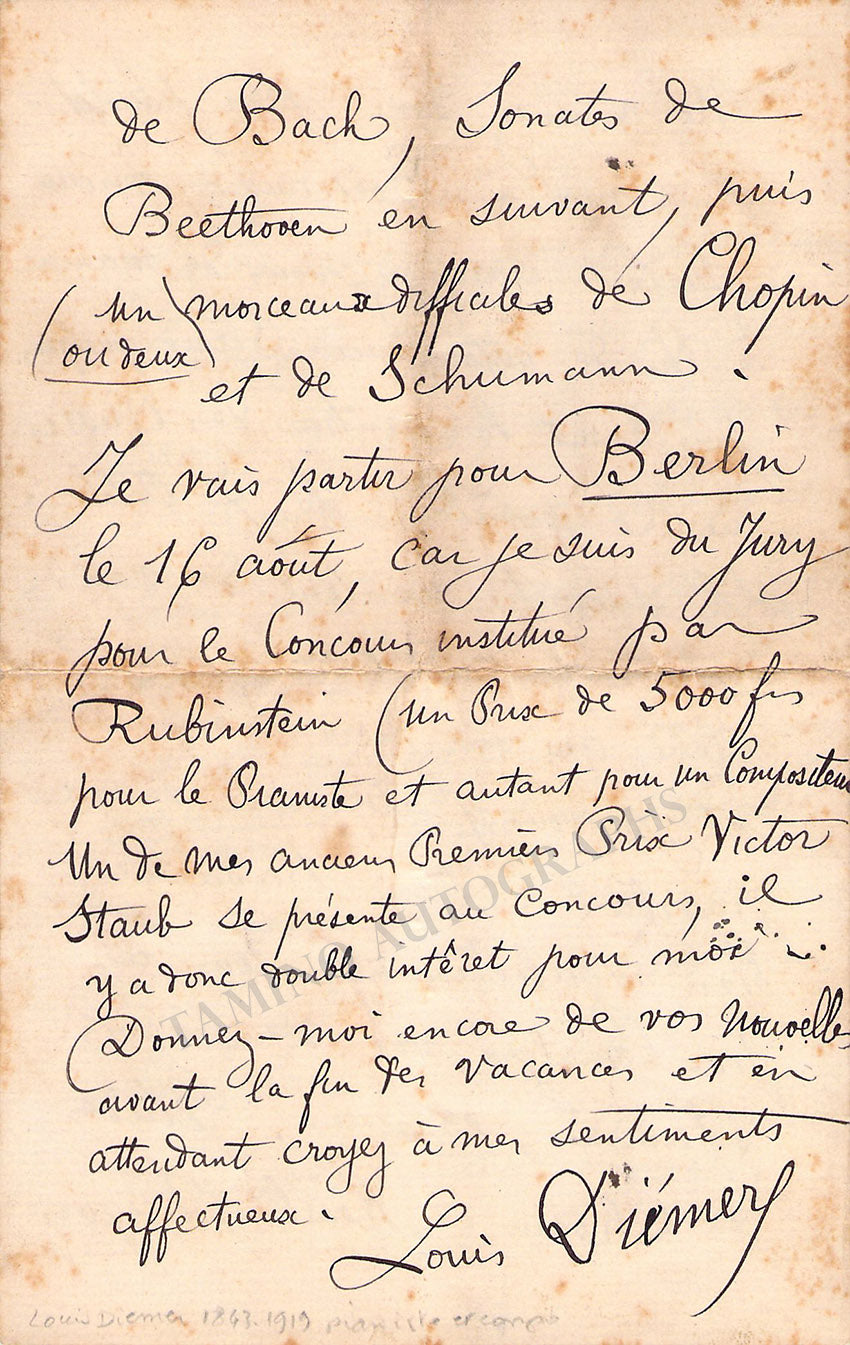 de Bach, Sonates de
Beethoven en suivant, puis
(un morceaux difficiles de Chopin
ou deux)
et de Schumann.
Je vais partir pour Berlin
le 16 août, car je suis du Jury
pour le Concours institué par
Rubinstein (un Prix de 5000 frs
pour le Pianiste et autant pour un Compositeur
Un de mes anciens Premiers Prix Victor
Staub se présente au Concours, il
y a donc double intérêt pour moi...
Donnez-moi encore de vos nouvelles
avant la fin des vacances et en
attendant croyez à mes sentiments
affectueux.
Louis Diémer
Louis Diemer 1843-1919 pianiste et compo
TAMINO AUTOGRAPHS